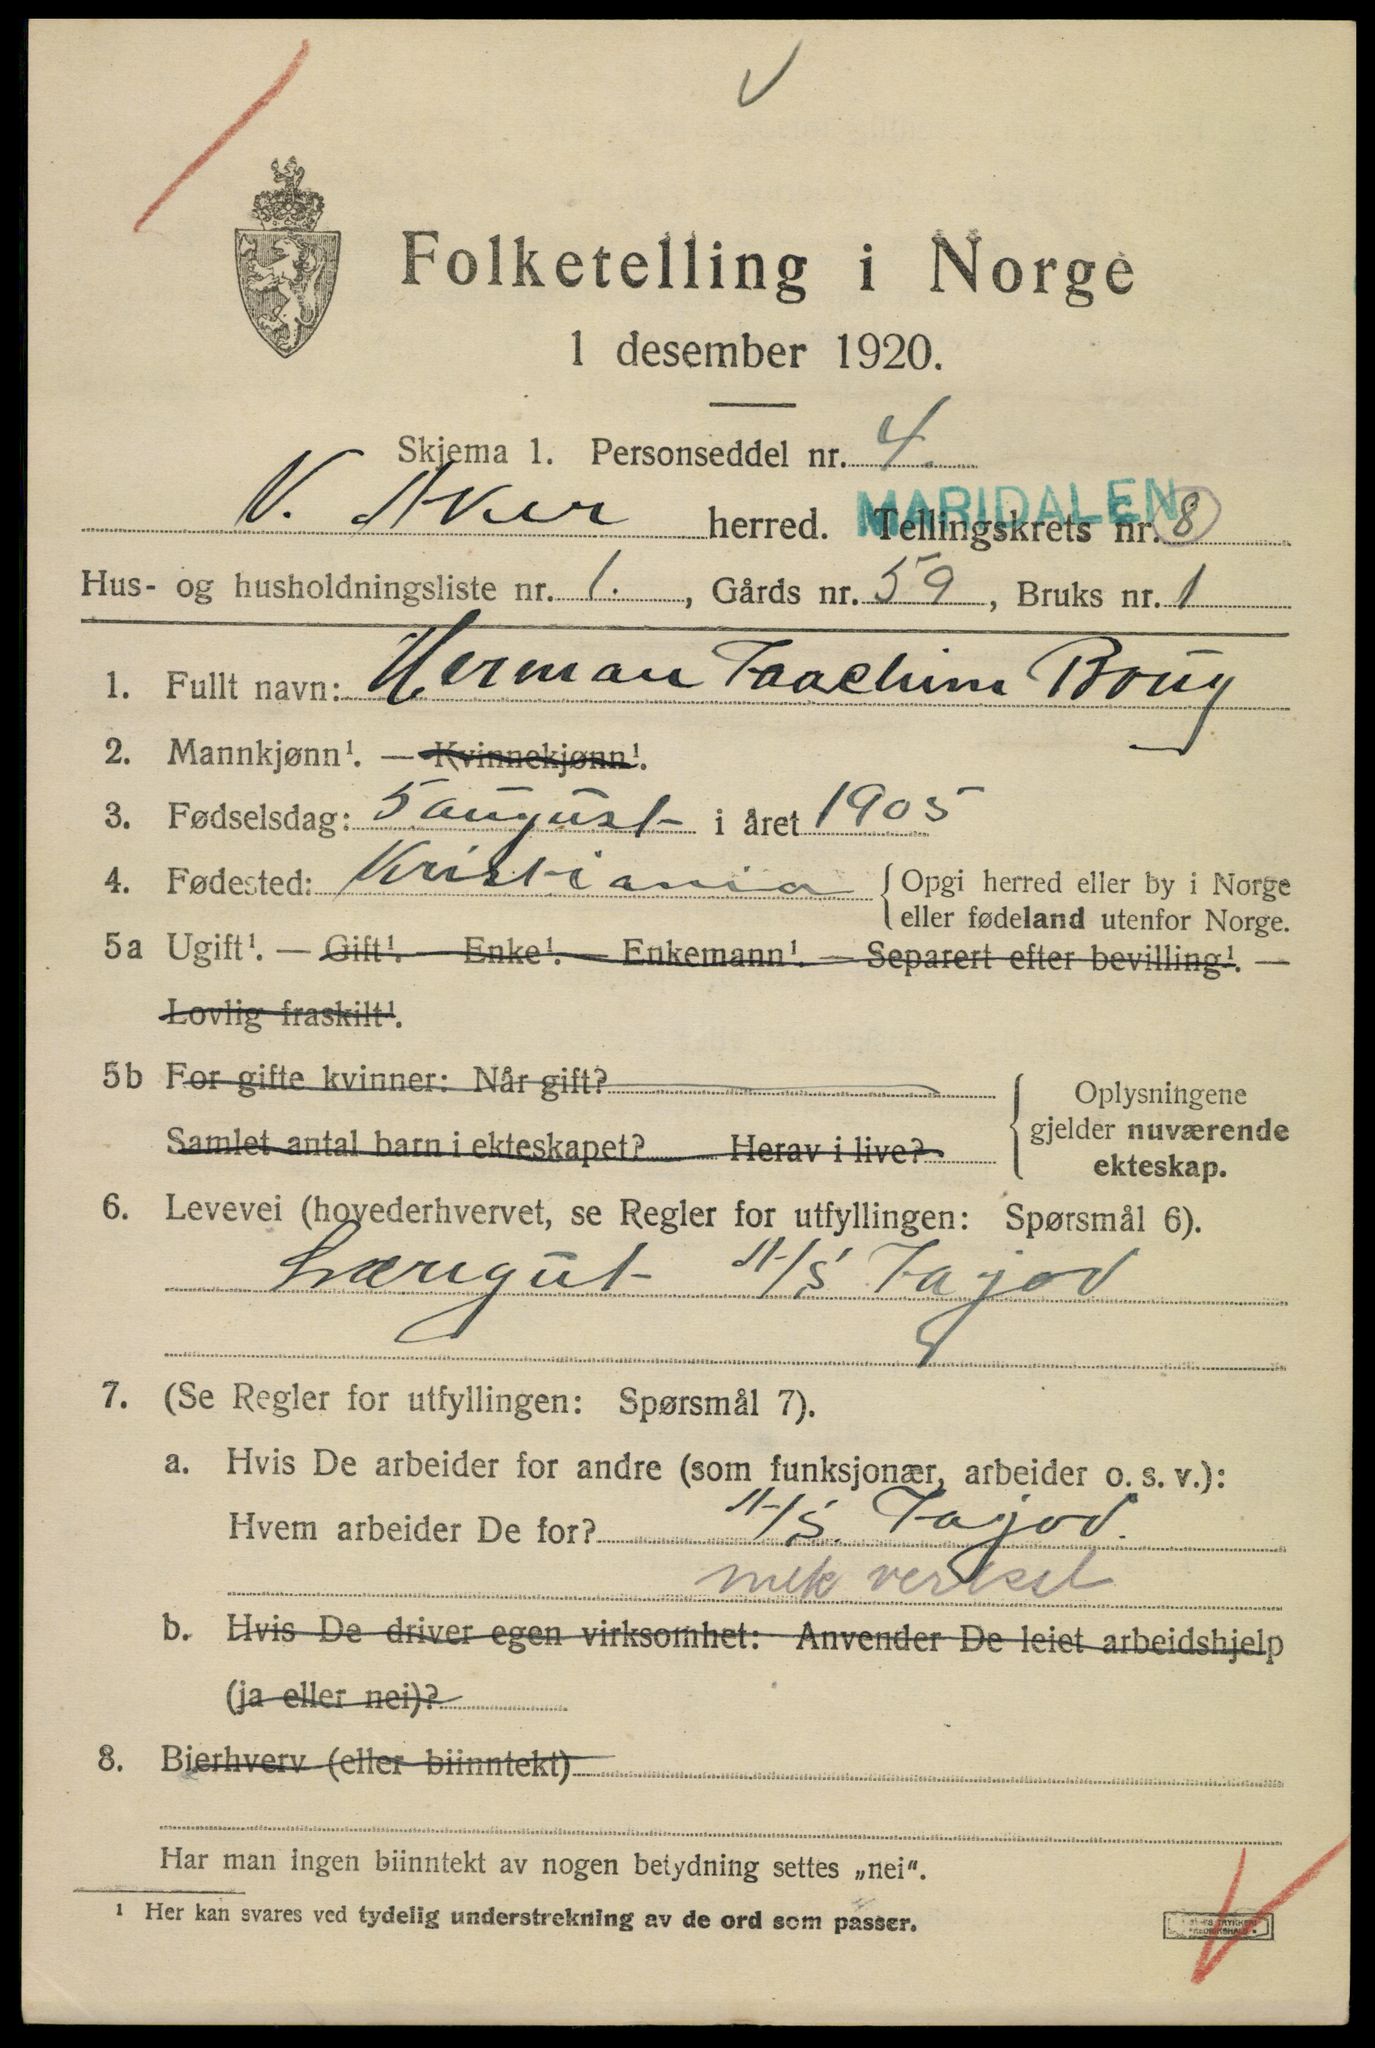 Folketelling i Norge
1 desember 1920.
Skjema 1. Personseddel nr. 4.
V. Aker herred. MARIDALEN Tellingskrets nr. 8
Hus- og husholdningsliste nr. 1., Gårds nr. 59, Bruks nr. 1
1. Fullt navn: Herman Joachim Boug
2. Mannkjønn¹. — Kvinnekjønn¹.
3. Fødselsdag: 5 august i året 1905
4. Fødested: Kristiania { Opgi herred eller by i Norge
eller fødeland utenfor Norge.
5a Ugift¹. — Gift¹. — Enke¹. — Enkemann¹. — Separert efter bevilling¹. —
Lovlig fraskilt¹.
5b For gifte kvinner: Når gift?
Samlet antal barn i ekteskapet? Herav i live?
Oplysningene
gjelder nuværende
ekteskap.
6. Levevei (hovederhvervet, se Regler for utfyllingen: Spørsmål 6).
Læregut A/S Jajod
7. (Se Regler for utfyllingen: Spørsmål 7).
a. Hvis De arbeider for andre (som funksjonær, arbeider o. s. v.):
Hvem arbeider De for? A/S. Jajod.
mek verksd
b. Hvis De driver egen virksomhet: Anvender De leiet arbeidshjelp
(ja eller nei)?
8. Bierhverv (eller biinntekt)
Har man ingen biinntekt av nogen betydning settes „nei".
¹ Her kan svares ved tydelig understrekning av de ord som passer.